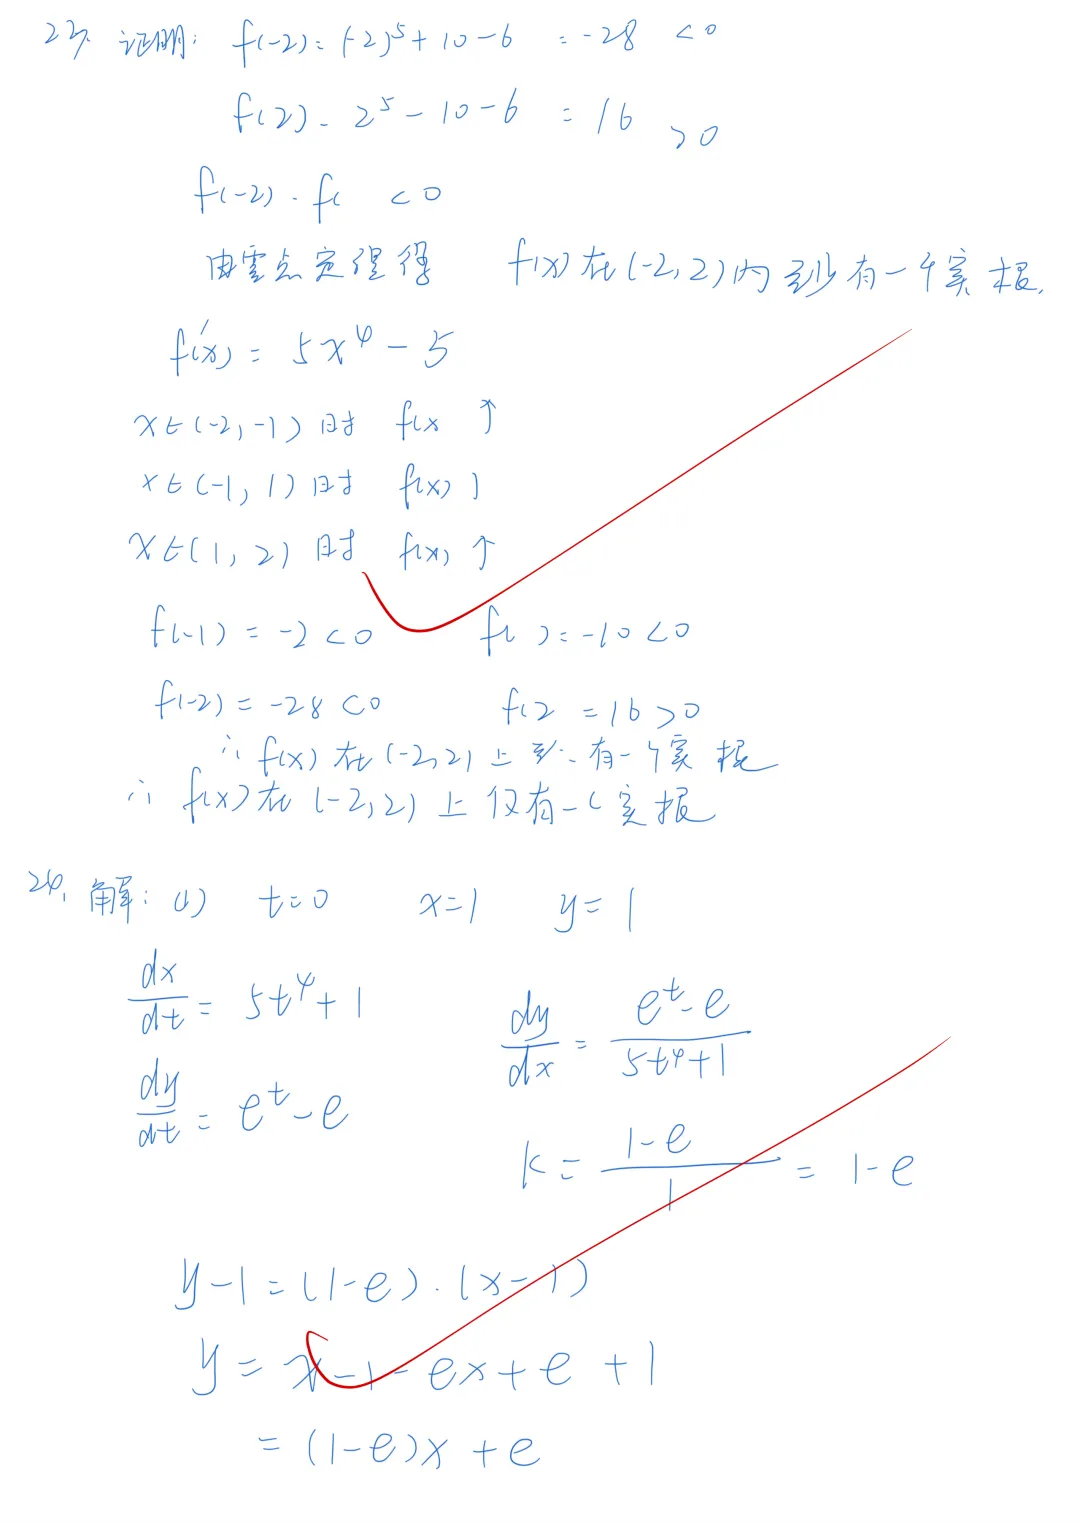 23. 证明: f(-2)=(-2)^5+10-6 =-28 <0
f(2)=2^5-10-6 =16 >0
f(-2)·f( <0
由零点定理得 f(x)在(-2,2)内至少有一个实根.
f'(x)=5x^4-5
x∈(-2,-1)时 f(x ↑
x∈(-1,1)时 f(x)
x∈(1,2)时 f(x) ↑
f(-1)=-2<0 f( )=-10<0
f(-2)=-28<0 f(2 =16>0
∴ f(x)在(-2,2)上至 有一个实根
∴ f(x)在(-2,2)上仅有一个实根
24. 解: (1) t=0 x=1 y=1
dx/dt = 5t^4+1
dy/dx = (e^t-e)/(5t^4+1)
dy/dt = e^t-e
k = (1-e)/1 = 1-e
y-1=(1-e)·(x-1)
y=x-1-ex+e+1
=(1-e)x+e